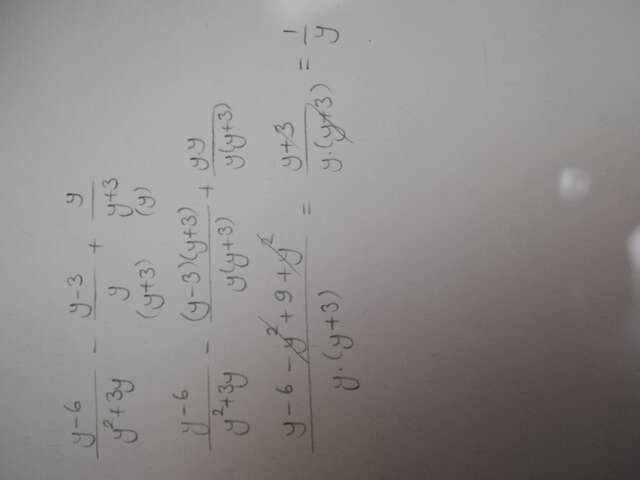 \frac{y-6}{y^2+3y} - \frac{y-3}{\underset{(y+3)}{y}} + \frac{y}{\underset{(y)}{y+3}}
\frac{y-6}{y^2+3y} - \frac{(y-3)(y+3)}{y(y+3)} + \frac{y.y}{y(y+3)}
\frac{y-6-\cancel{y^2}+9+\cancel{y^2}}{y.(y+3)} = \frac{\cancel{y+3}}{y.\cancel{(y+3)}} = \frac{1}{y}